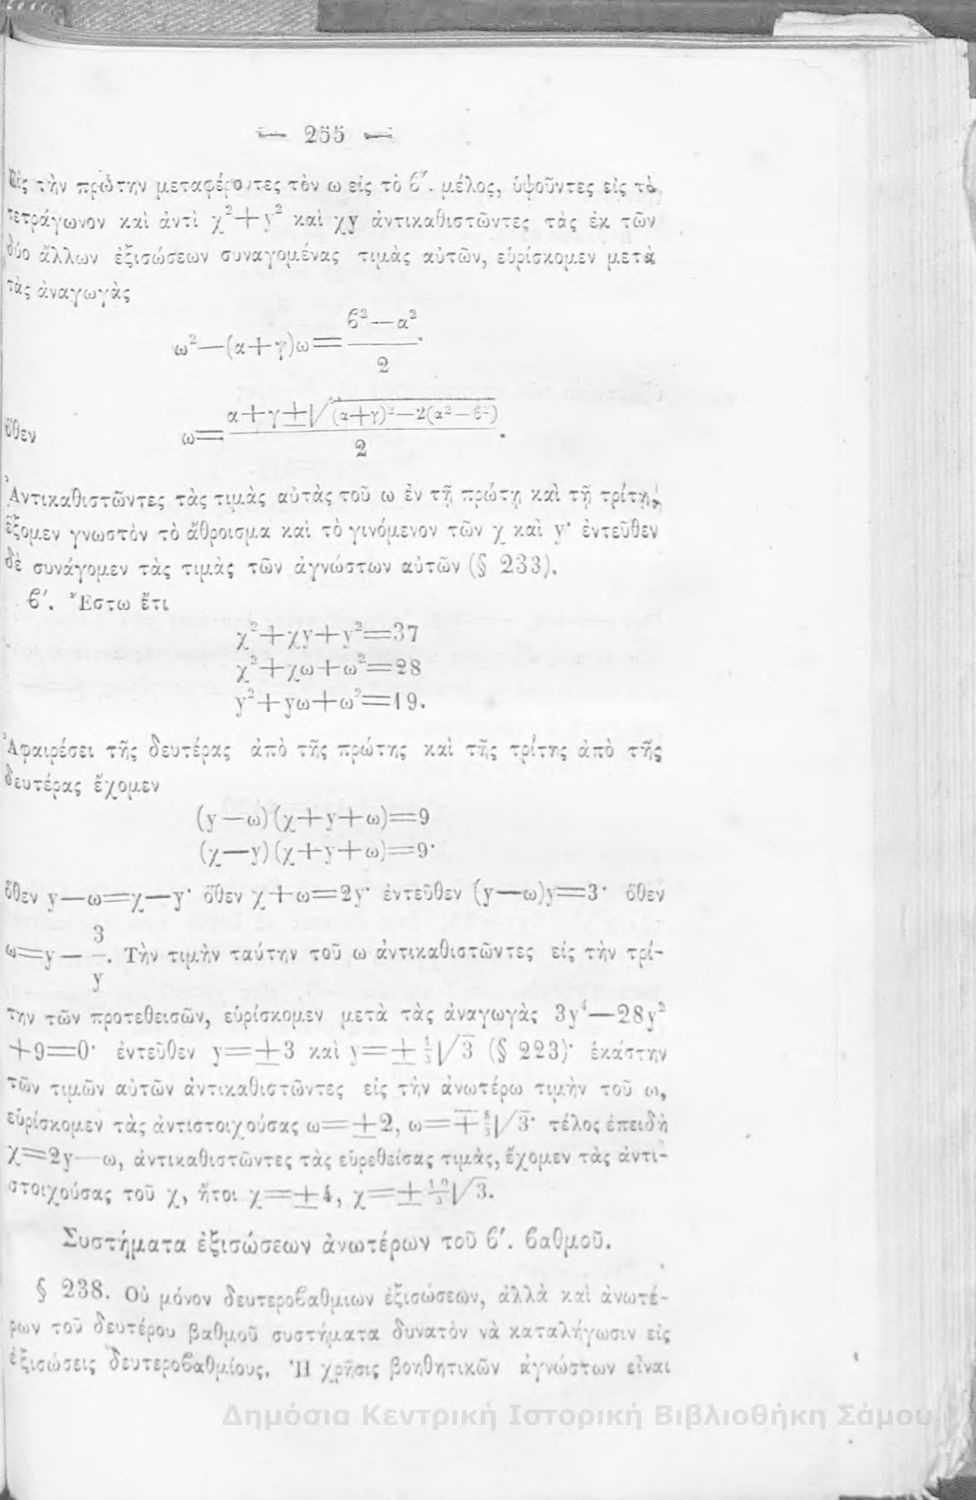 — 255 —
Εἰς τὴν πρώτην μεταφέροντες τὸν ω εἰς τὸ ϐʹ. μέλος, ὑψοῦντες εἰς τὸ
τετράγωνον καὶ ἀντὶ χ²+y² καὶ χy ἀντικαθιστῶντες τὰς ἐκ τῶν
δύο ἄλλων ἐξισώσεων συναγομένας τιμὰς αὐτῶν, εὑρίσκομεν μετὰ
τὰς ἀναγωγὰς
ω²—(α+γ)ω=(ϐ²—α²)/2.
ὅθεν ω=(α+γ±√(α+γ)²—2(α²—ϐ²))/2.
Ἀντικαθιστῶντες τὰς τιμὰς αὐτὰς τοῦ ω ἐν τῇ πρώτῃ καὶ τῇ τρίτῃ,
ἕξομεν γνωστὸν τὸ ἄθροισμα καὶ τὸ γινόμενον τῶν χ καὶ y· ἐντεῦθεν
δὲ συνάγομεν τὰς τιμὰς τῶν ἀγνώστων αὐτῶν (§ 233).
ϐʹ. Ἔστω ἔτι
χ²+χy+y²=37
χ²+χω+ω²=28
y²+yω+ω²=19.
Ἀφαιρέσει τῆς δευτέρας ἀπὸ τῆς πρώτης καὶ τῆς τρίτης ἀπὸ τῆς
δευτέρας ἔχομεν
(y—ω)(χ+y+ω)=9
(χ—y)(χ+y+ω)=9·
ὅθεν y—ω=χ—y· ὅθεν χ+ω=2y· ἐντεῦθεν (y—ω)y=3· ὅθεν
ω=y — 3/y. Τὴν τιμὴν ταύτην τοῦ ω ἀντικαθιστῶντες εἰς τὴν τρί-
την τῶν προτεθεισῶν, εὑρίσκομεν μετὰ τὰς ἀναγωγὰς 3y⁴—28y²
+9=0· ἐντεῦθεν y=±3 καὶ y=±⅓√3 (§ 223)· ἑκάστην
τῶν τιμῶν αὐτῶν ἀντικαθιστῶντες εἰς τὴν ἀνωτέρω τιμὴν τοῦ ω,
εὑρίσκομεν τὰς ἀντιστοιχούσας ω=±2, ω=∓8/3√3· τέλος ἐπειδὴ
χ=2y—ω, ἀντικαθιστῶντες τὰς εὑρεθείσας τιμὰς, ἔχομεν τὰς ἀντι-
στοιχούσας τοῦ χ, ἤτοι χ=±4, χ=±10/3√3.
Συστήματα ἐξισώσεων ἀνωτέρων τοῦ ϐʹ. ϐαθμοῦ.
§ 238. Οὐ μόνον δευτεροϐαθμιων ἐξισώσεων, ἀλλὰ καὶ ἀνωτέ-
ρων τοῦ δευτέρου βαθμοῦ συστήματα δυνατὸν νὰ καταλήγωσιν εἰς
ἐξισώσεις δευτεροϐαθμίους. Ἡ χρῆσις βοηθητικῶν ἀγνώστων εἶναι
Δημόσια Κεντρική Ιστορική Βιβλιοθήκη Σάμου